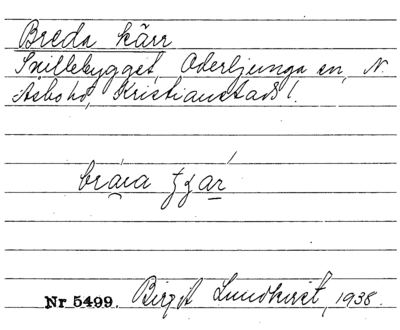 Breda kärr
Skillebygget, Oderljunga sn, N.
Åsbo hd, Kristianstads l.
Nr 5499. Birgit Lundkvist, 1938.